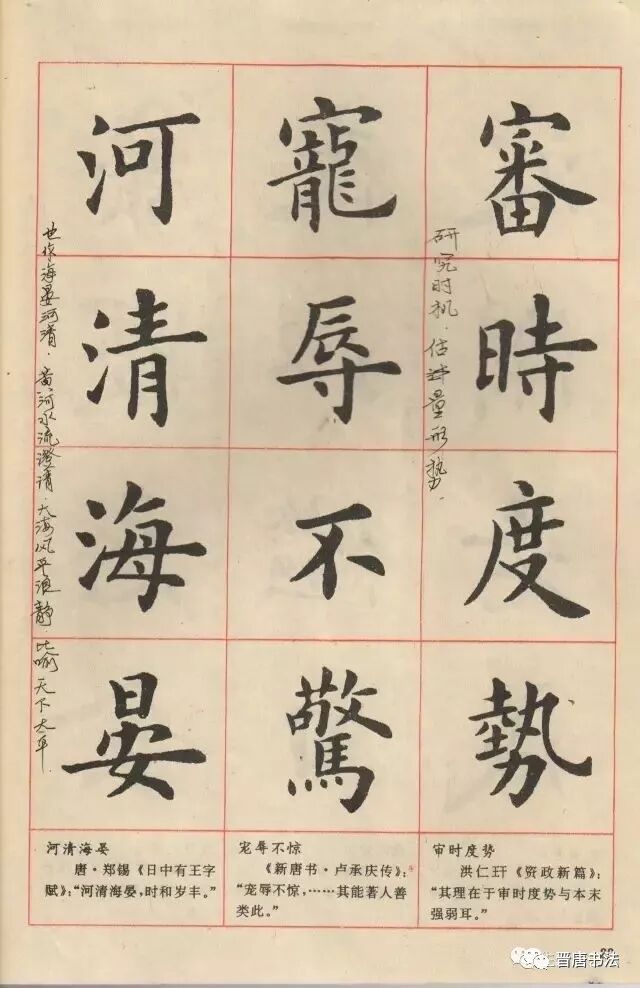 審時度勢
研究时机．估计量形势．
寵辱不驚
河清海晏
也作海晏河清．黄河水流澄清．大海风平浪静．比喻天下太平．
审时度势
洪仁玕《资政新篇》：
“其理在于审时度势与本末
强弱耳。”
宠辱不惊
《新唐书·卢承庆传》：
“宠辱不惊，……其能著人善
类此。”
河清海晏
唐·郑锡《日中有王字
赋》：“河清海晏，时和岁丰。”
晋唐书法